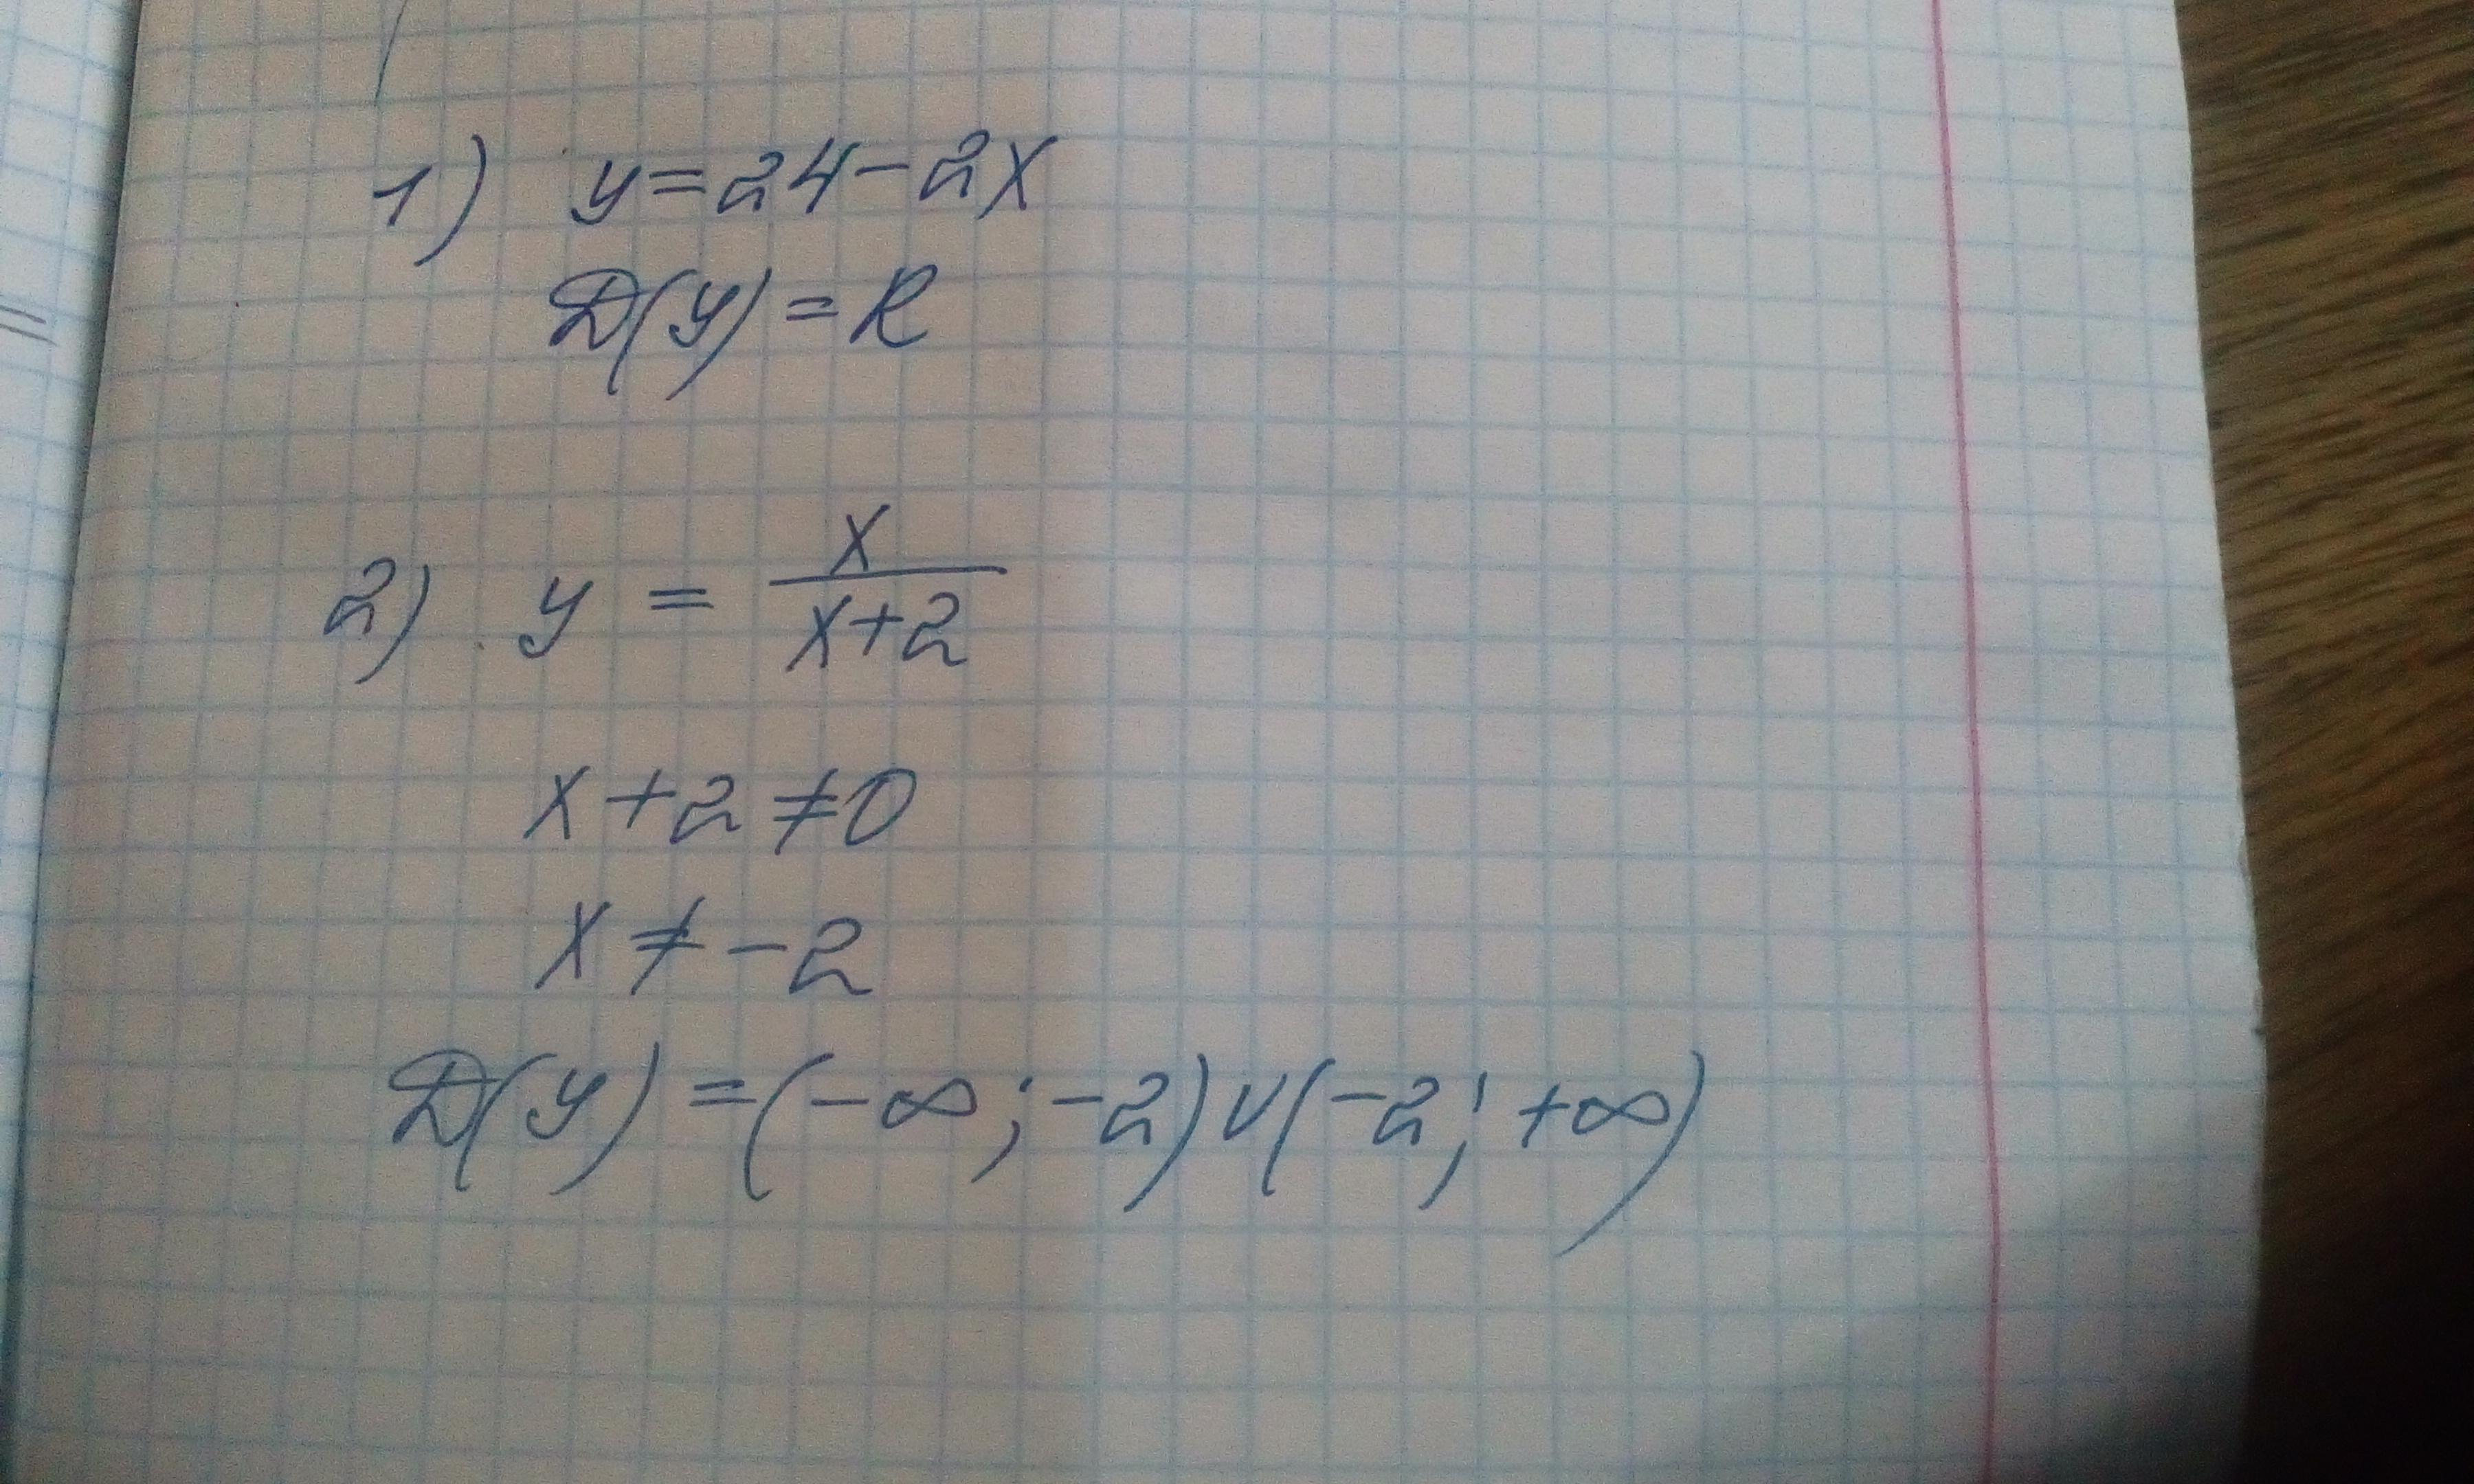 1) y = 24 - 2x
D(y) = R
2) y = x/(x+2)
x + 2 ≠ 0
x ≠ -2
D(y) = (-∞; -2) ∪ (-2; +∞)